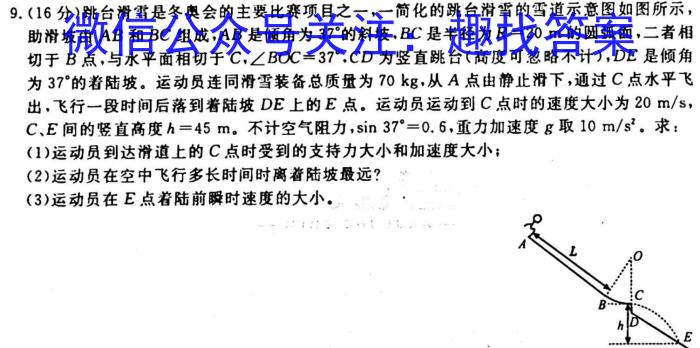 9.(16分)跳台滑雪是冬奥会的主要比赛项目之一,一简化的跳台滑雪的雪道示意图如图所示,
助滑坡由AB和BC组成,AB是倾角为37°的斜坡,BC是半径为R=20 m的圆弧面,二者相
切于B点,与水平面相切于C,∠BOC=37°,CD为竖直跳台(高度可忽略不计),DE是倾角
为37°的着陆坡。运动员连同滑雪装备总质量为70 kg,从A点由静止滑下,通过C点水平飞
出,飞行一段时间后落到着陆坡DE上的E点。运动员运动到C点时的速度大小为20 m/s,
C、E间的竖直高度h=45 m。不计空气阻力,sin 37°=0.6,重力加速度g取10 m/s²。求:
(1)运动员到达滑道上的C点时受到的支持力大小和加速度大小;
(2)运动员在空中飞行多长时间时离着陆坡最远?
(3)运动员在E点着陆前瞬时速度的大小。
微信公众号关注:趣找答案
A
L
O
B
C
D
h
E